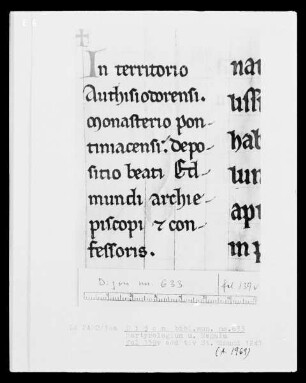 In territorio
Authisiodorensi.
monasterio pon-
tiniacensi: depo-
sitio beati Ed-
mundi archie-
piscopi ⁊ con-
fessoris.
nat
uissi
hab
lun
apr
in p
Dijon ms 633
fol 139v
(+ 1969)